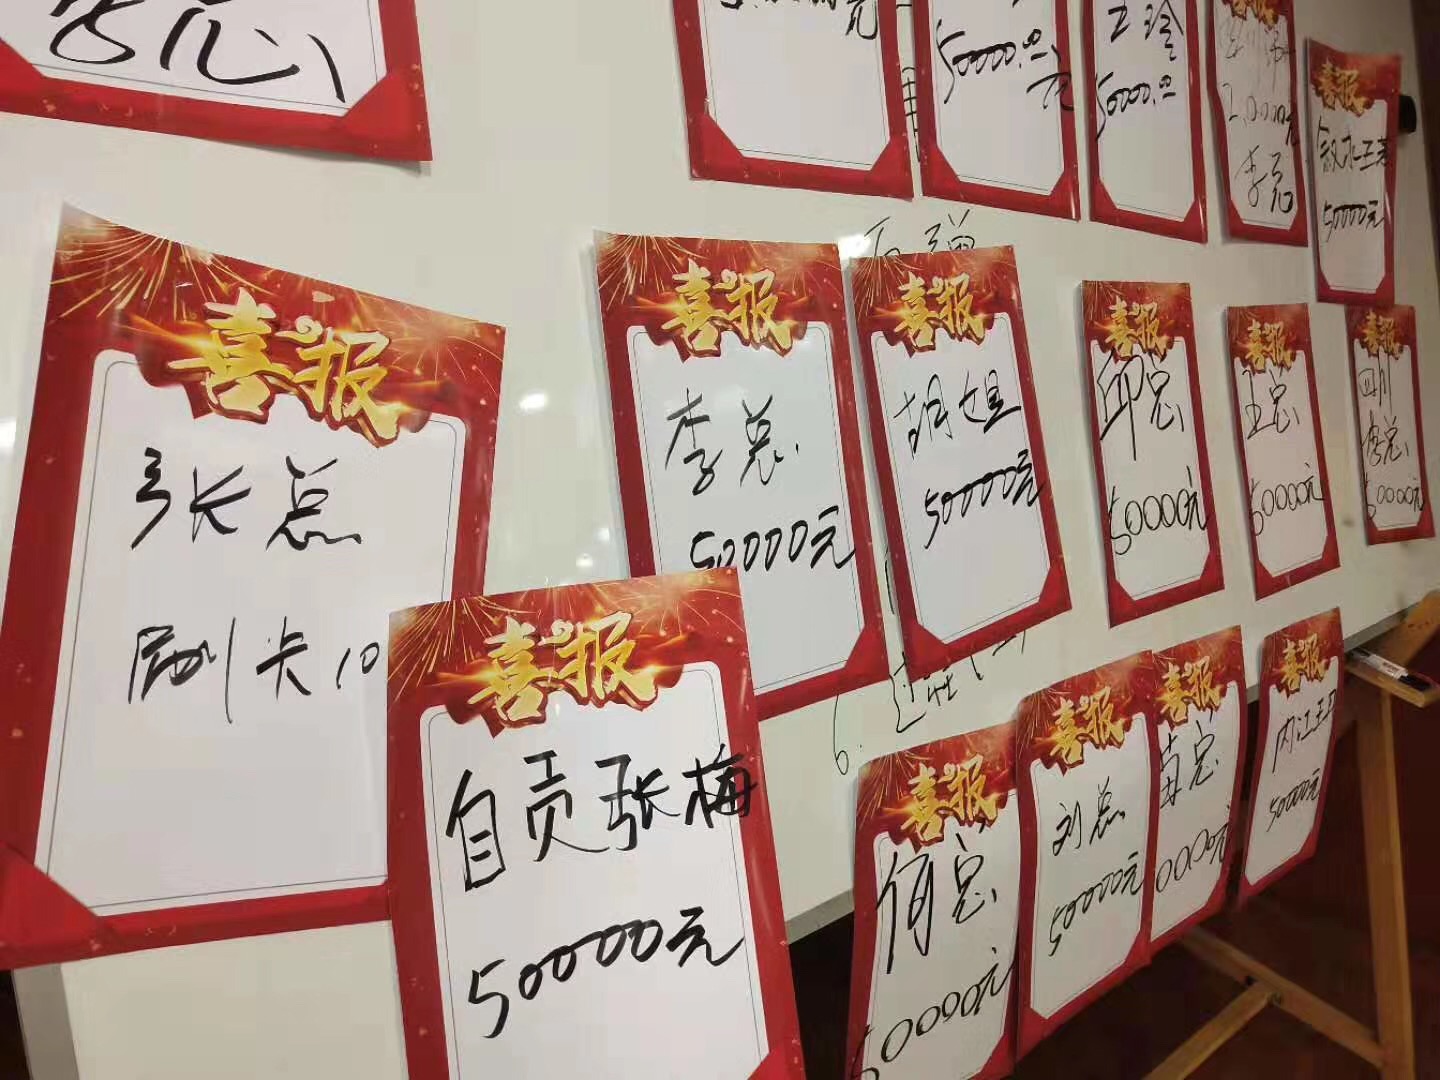 50000.00
元
50000.00
20000元
李总
喜报
叙永王
50000元
喜报
张总
刷卡10
喜报
李总
50000元
喜报
胡姐
50000元
喜报
邱总
50000元
喜报
王总
50000元
喜报
四川
李总
50000元
喜报
自贡张梅
50000元
喜报
何总
50000元
喜报
刘总
50000元
喜报
苗总
0000元
喜报
内江王
50000元
6.